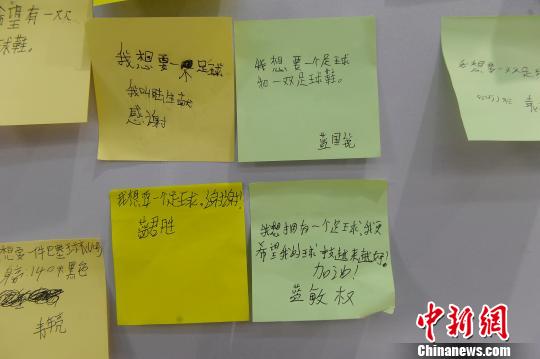 希望有一双
球鞋。
我想要一个足球
我叫
感谢
我想要一个足球
和一双足球鞋。
蓝国
我想要一双足球
我想要一个足球,谢谢!
蓝君胜
我想拥有一个足球,我更
希望我的球技越来越好!
加油!
蓝敏权
想要一件巴塞
140 黑色
韦
中新网
Chinanews.com